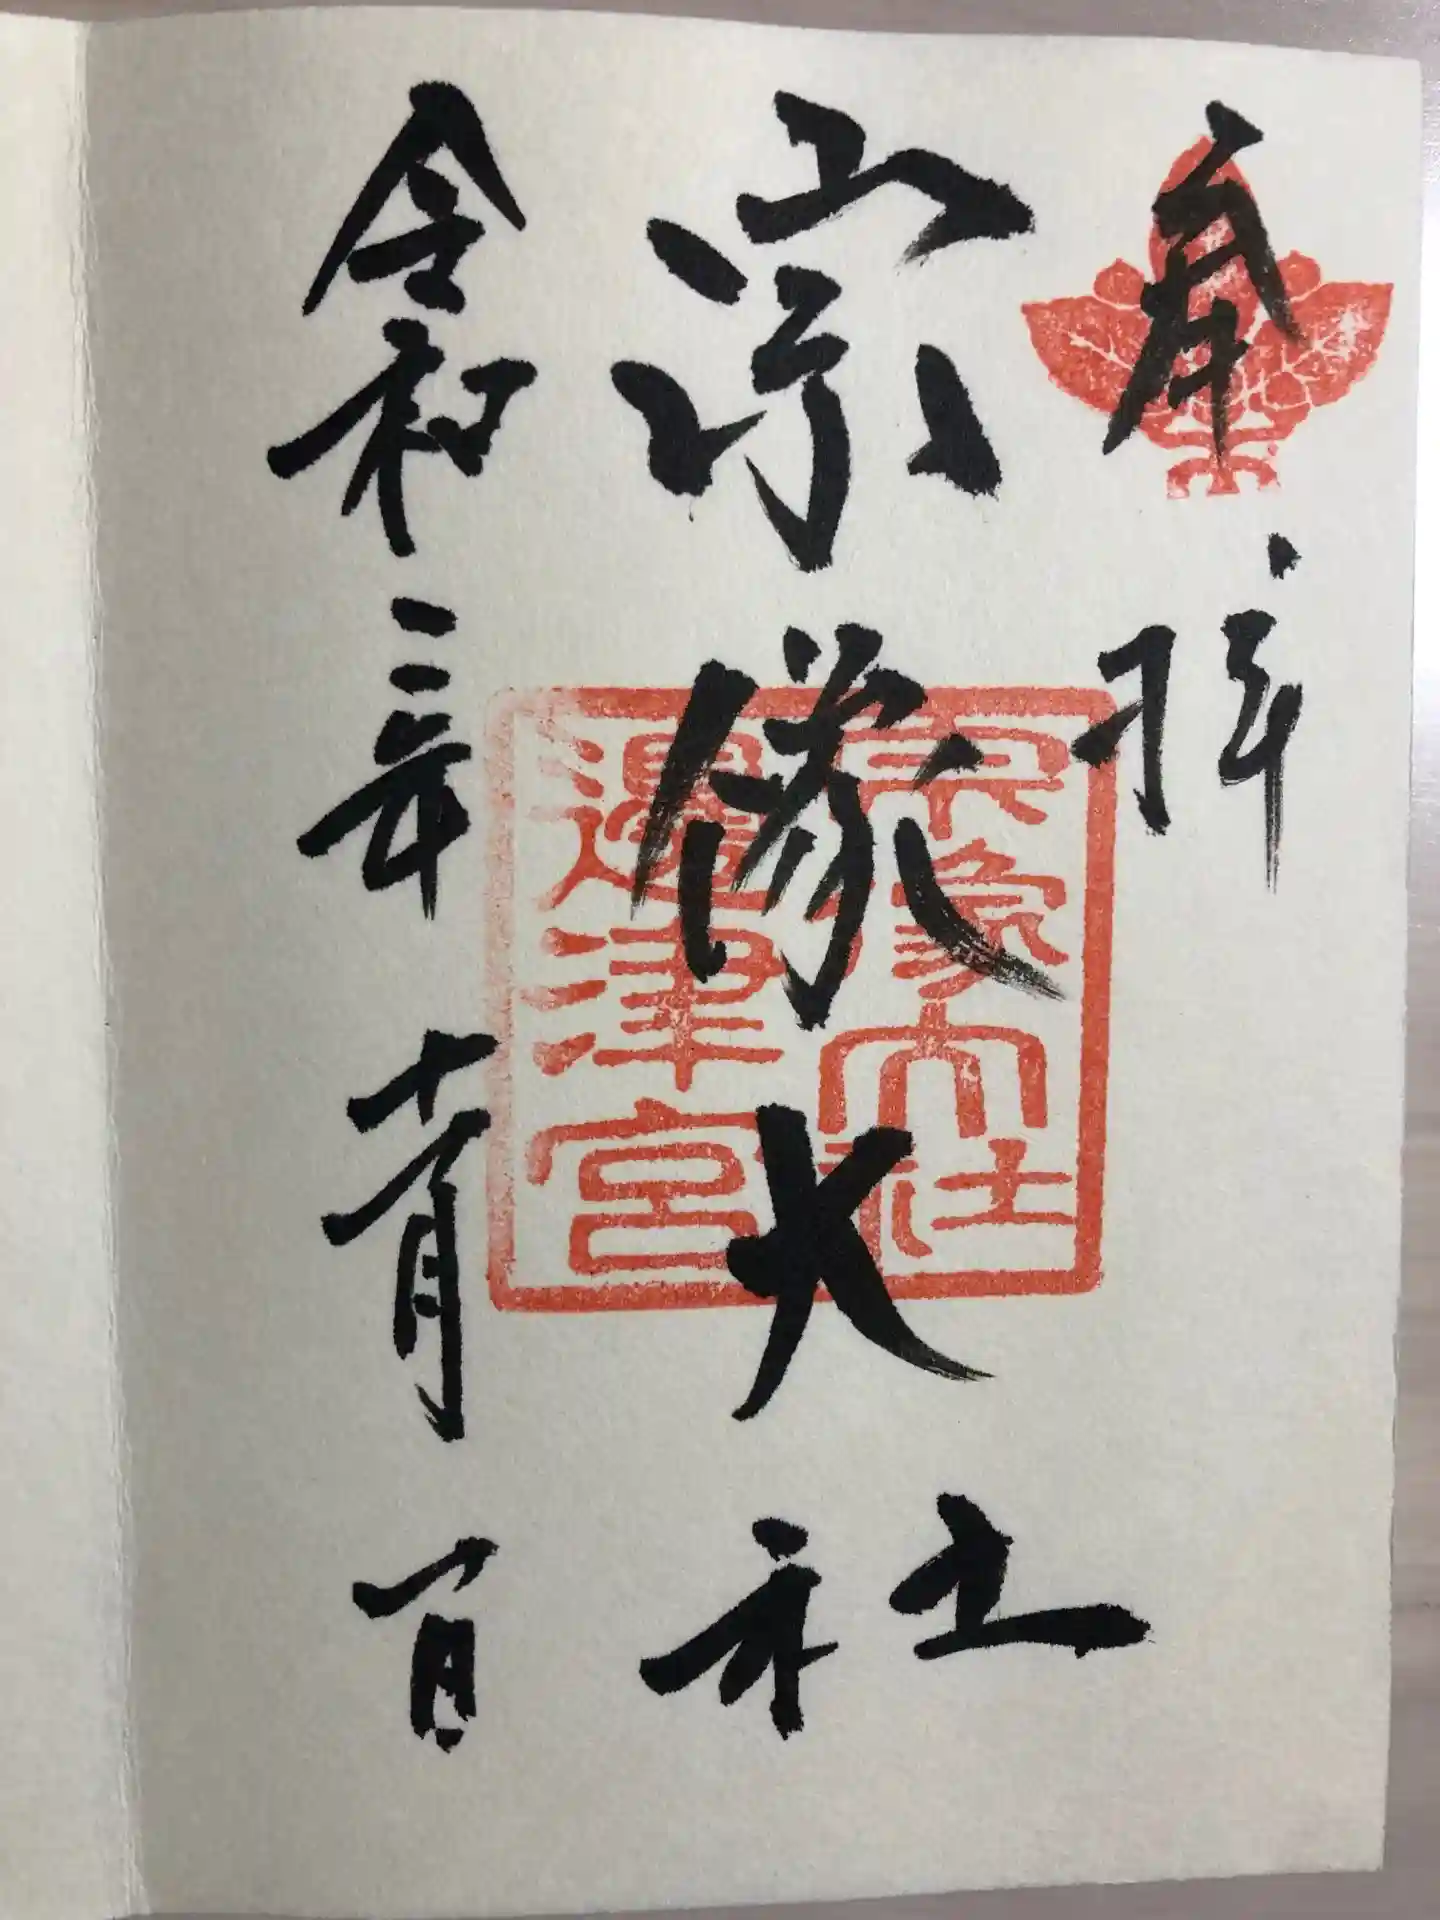 奉拝
宗像大社
令和二年十一月一日
宗像大社
邊津宮